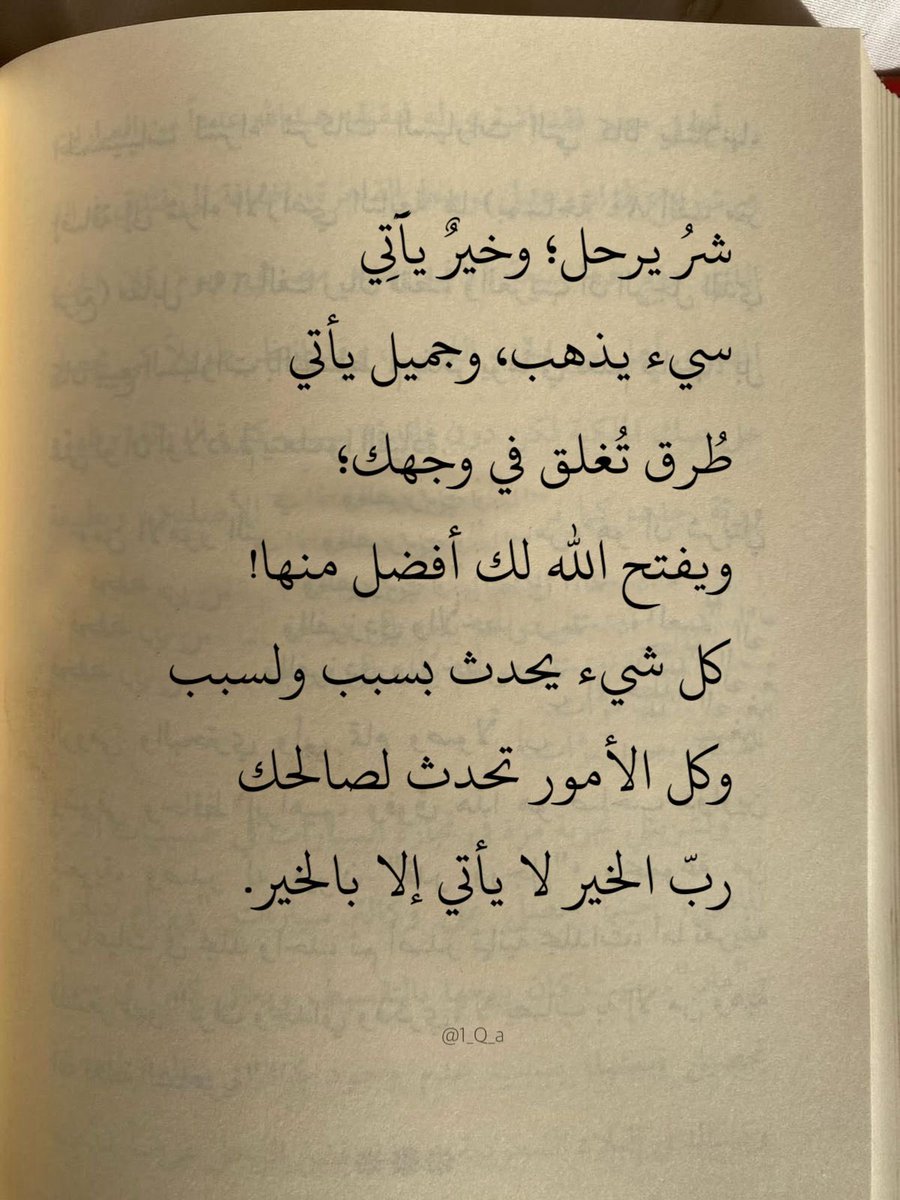 شرُ يرحل؛ وخيرٌ يآتِي
سيء يذهب، وجميل يأتي
طُرق تُغلق في وجهك؛
ويفتح الله لك أفضل منها!
كل شيء يحدث بسبب ولسبب
وكل الأمور تحدث لصالحك
ربّ الخير لا يأتي إلا بالخير.
@1_Q_a